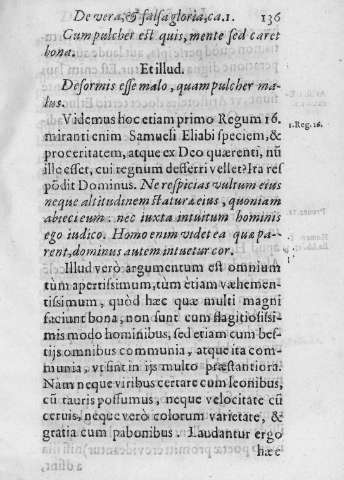 De vera, & falsa gloria, ca. 1. 136
Cum pulcher est quis, mente sed caret
bona.
Et illud.
Deformis esse malo, quam pulcher ma-
lus.
Videmus hoc etiam primo Regum 16.
miranti enim Samueli Eliabi speciem, &
1. Reg. 16.
proceritatem, atque ex Deo quærenti, nũ
ille esset, cui regnum defferri vellet? Ita res
põdit Dominus. Ne respicias vultum eius
neque altitudinem staturæ eius, quoniam
abieci eum: nec iuxta intuitum hominis
ego iudico. Homo enim videt ea quæ pa-
rent, dominus autem intuetur cor.
Illud verò argumentum est omnium
tùm apertissimum, tùm etiam væhemen-
tissimum, quòd hæc quæ multi magni
faciunt bona, non sunt cum flagitiosissi-
mis modo hominibus, sed etiam cum bes-
tijs omnibus communia, atque ita com-
munia, vt sint in ijs multo præstantiora.
Nam neque viribus certare cum leonibus,
cũ tauris possumus, neque velocitate cũ
ceruis, neque verò colorum varietate, &
gratia cum pabonibus. Laudantur ergo
hæc